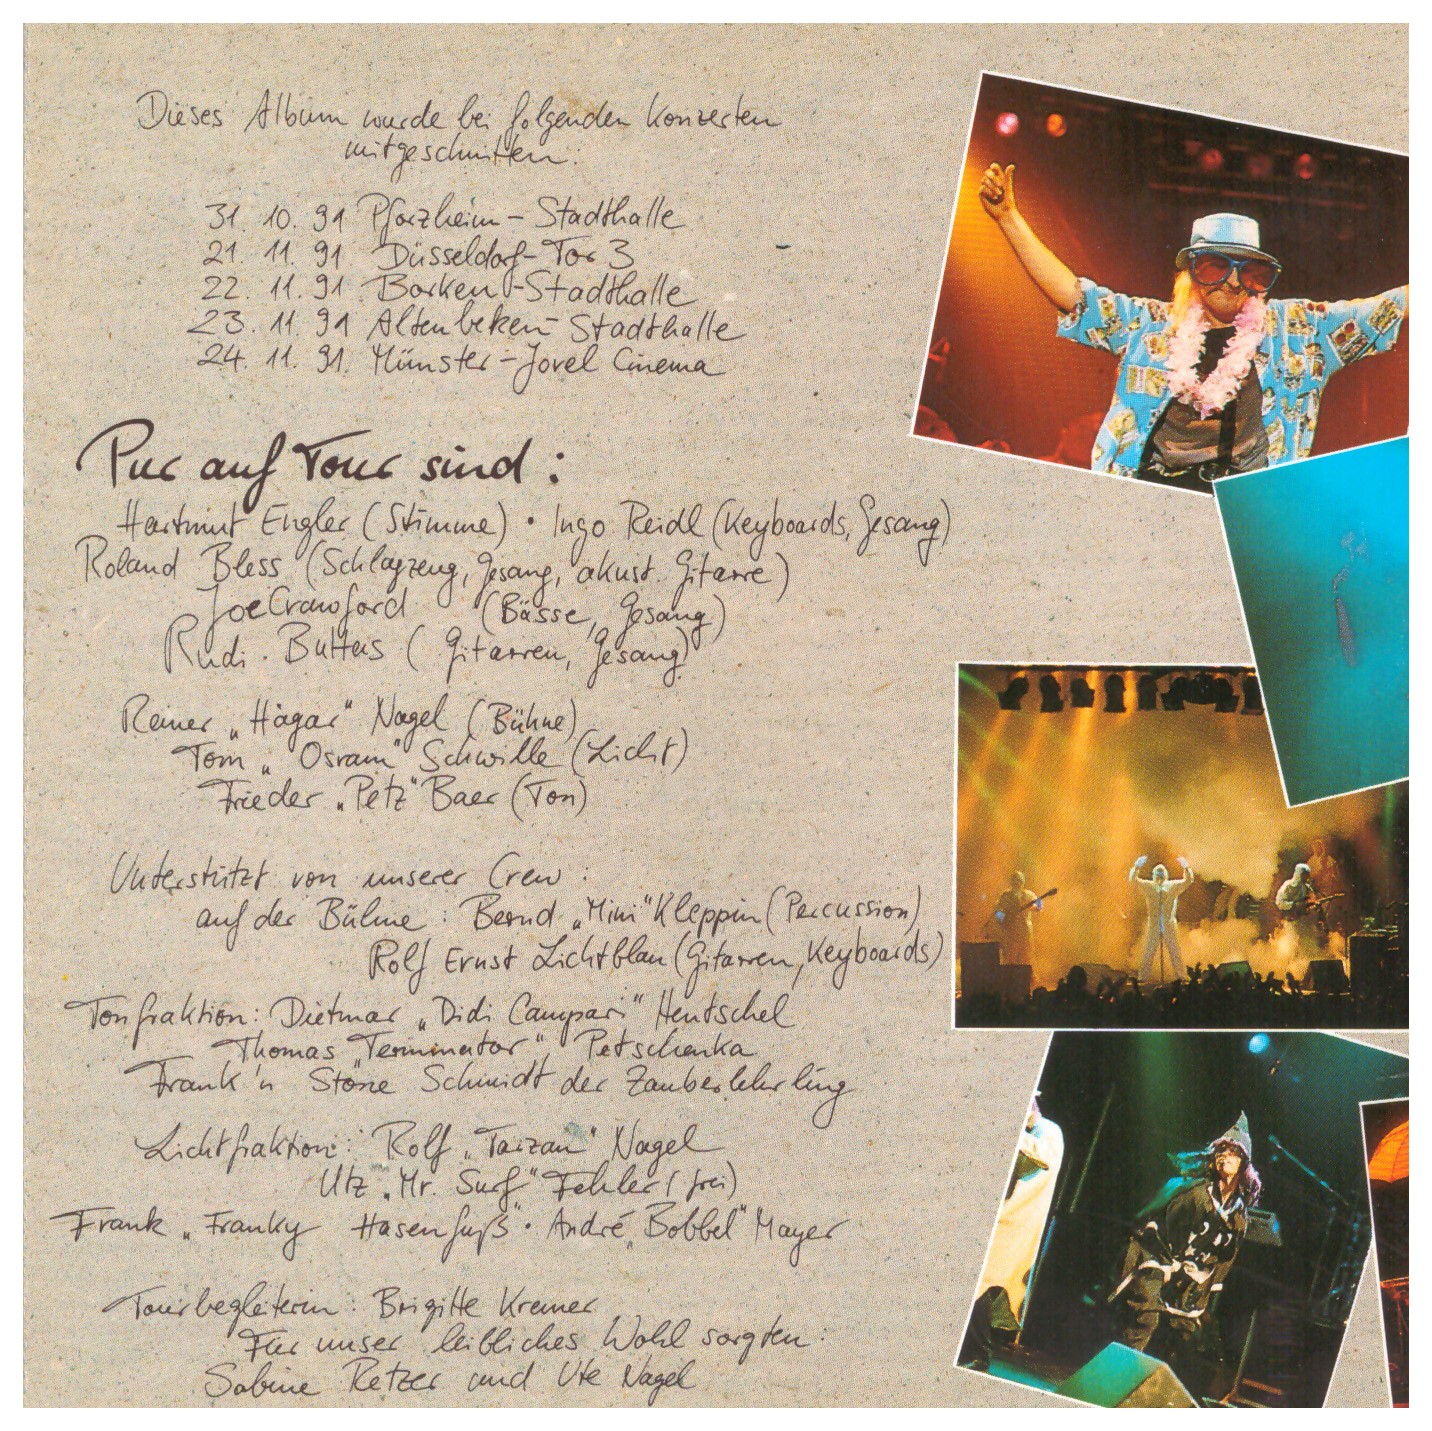 Dieses Album wurde bei folgenden Konzerten
mitgeschnitten:
31. 10. 91 Pforzheim - Stadthalle
21. 11. 91. Düsseldorf - Tor 3
22. 11. 91 Borken - Stadthalle
23. 11. 91 Altenbeken - Stadthalle
24. 11. 91. Münster - Jovel Cinema
Pur auf Tour sind:
Hartmut Engler (Stimme) • Ingo Reidl (Keyboards, Gesang)
Roland Bless (Schlagzeug, Gesang, akust. Gitarre)
Joe Crawford (Bässe, Gesang)
Rudi. Buttas (Gitarren, Gesang)
Reiner „Hägar" Nagel (Bühne)
Tom „Osram" Schwille (Licht)
Frieder „Petz" Baer (Ton)
Unterstützt von unserer Crew:
auf der Bühne: Bernd „Mini" Kleppin (Percussion)
Rolf Ernst Lichtblau (Gitarren, Keyboards)
Tonfraktion: Dietmar „Didi Campari" Hentschel
Thomas „Terminator" Petschenka
Frank'n Stöne Schmidt der Zauberlehrling
Lichtfraktion: Rolf „Tarzan" Nagel
Utz „Mr. Surf" Fehler (frei)
Frank „Franky Hasenfuß" • André „Bobbel" Mayer
Tourbegleiterin: Brigitte Kremer
Für unser leibliches Wohl sorgten:
Sabine Retzer und Ute Nagel